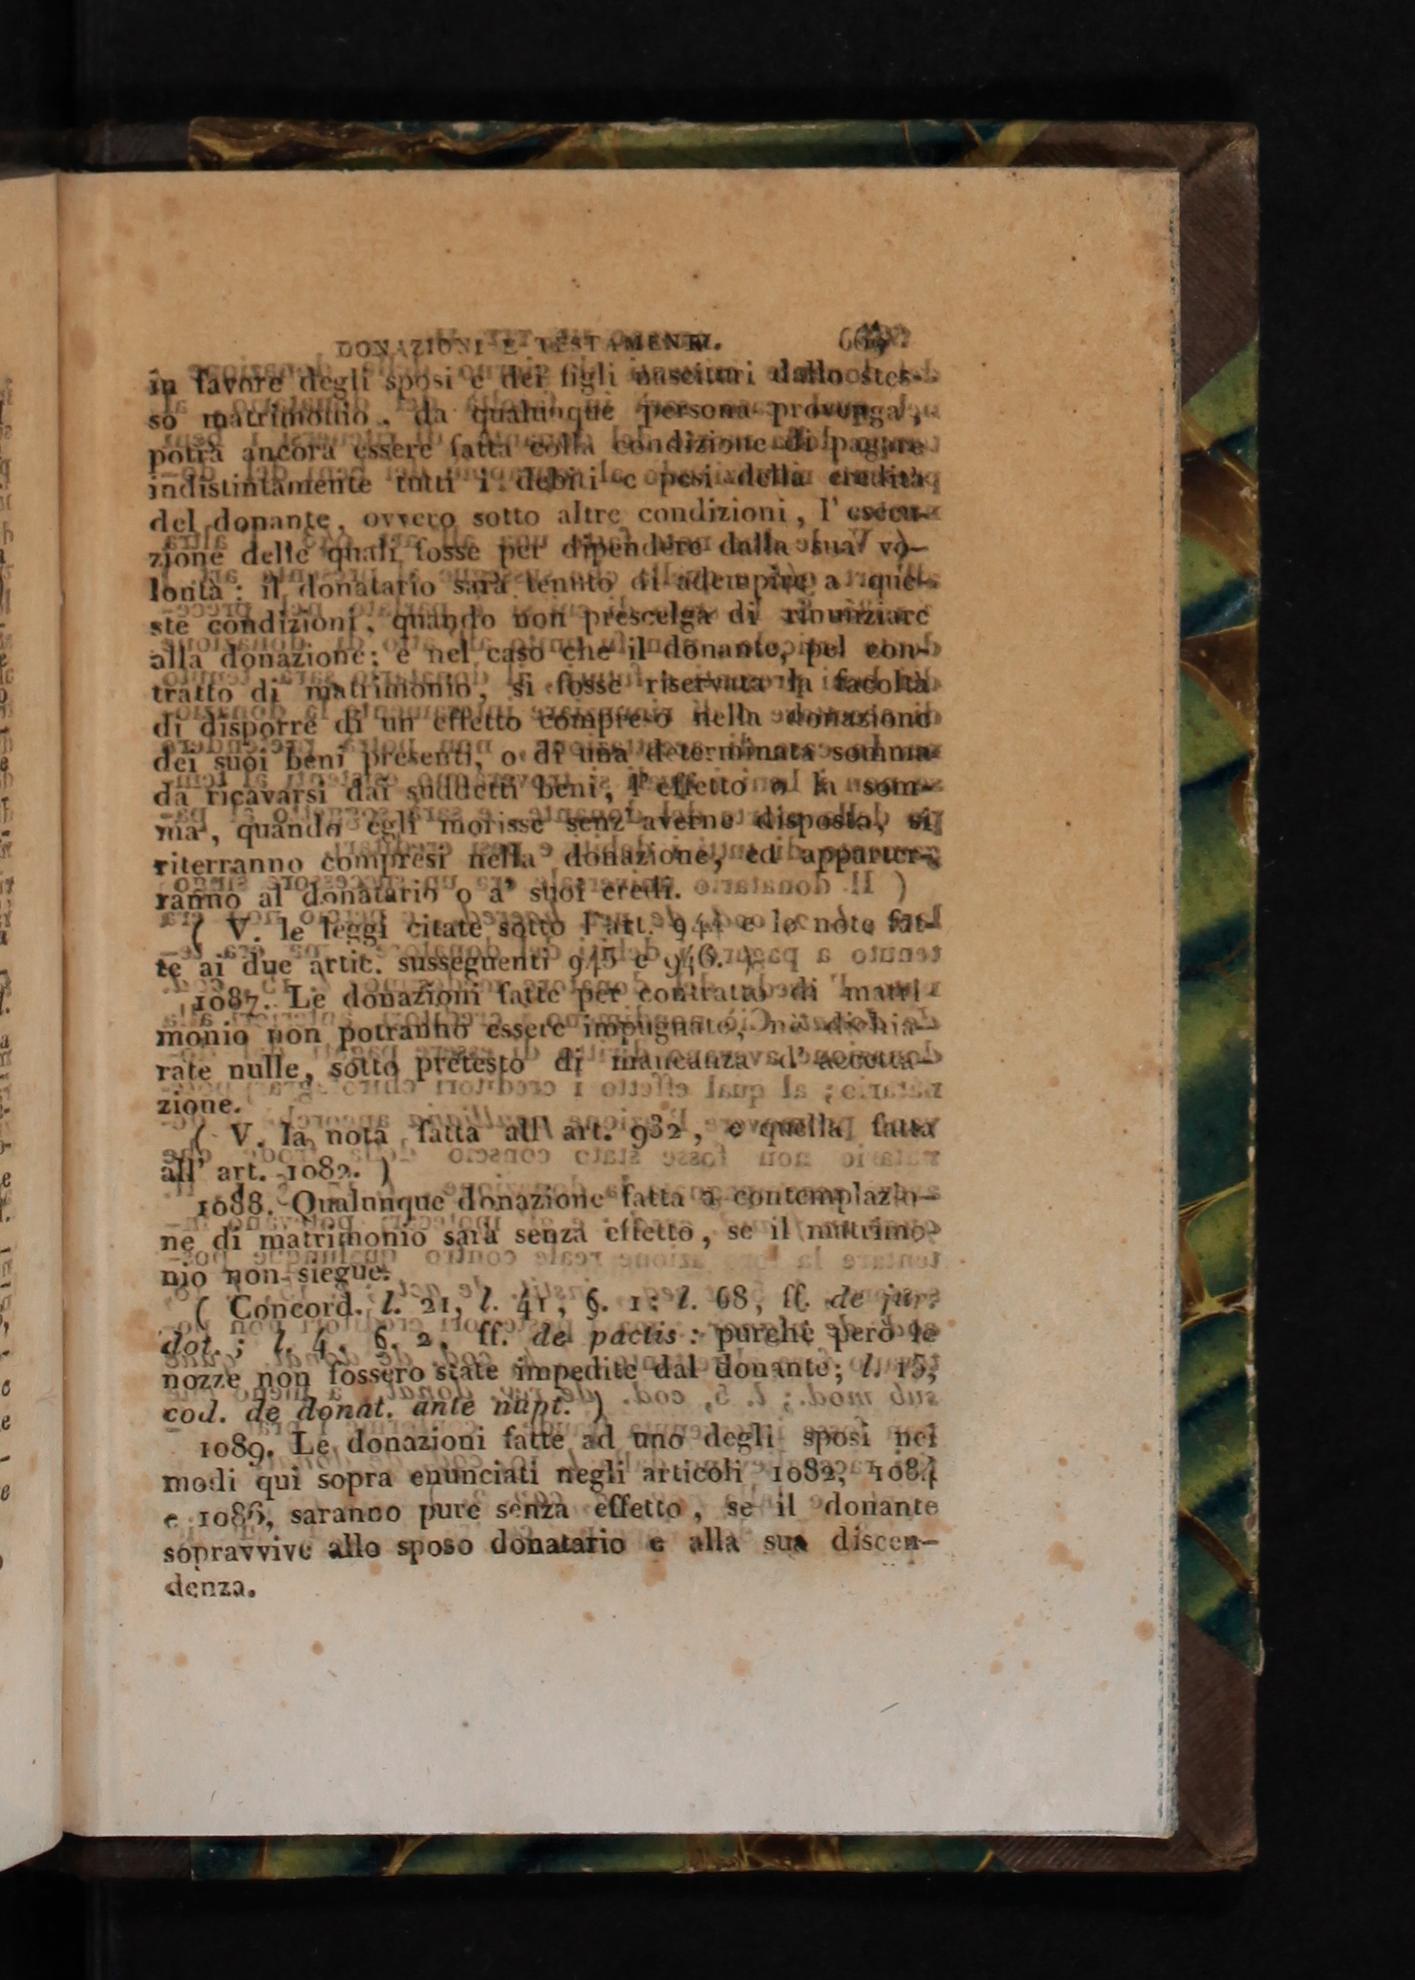 DONAZIONI E TESTAMENTI.
in favore degli sposi e dei figli nascituri dallo stes-
so matrimonio, da qualunque persona provenga,
potrà ancora essere fatta colla condizione di pagare
indistintamente tutti i debiti e pesi della eredità
del donante, ovvero sotto altre condizioni, l'esecu-
zione delle quali fosse per dipendere dalla sua vo-
lontà: il donatario sarà tenuto di adempire a que-
ste condizioni, quando non prescelga di rinunziare
alla donazione; e nel caso che il donante, pel con-
tratto di matrimonio, si fosse riservata la facoltà
di disporre di un effetto compreso nella donazione
dei suoi beni presenti, o di una determinata somma
da ricavarsi dai suddetti beni, l'effetto o la som-
ma, quando egli morisse senz'averne disposto, si
riterranno compresi nella donazione, ed apparter-
ranno al donatario o a' suoi eredi.
( V. le leggi citate sotto l'art. 944 e le note fat-
te ai due artic. susseguenti 945 e 946. )
1087. Le donazioni fatte per contratto di matri-
monio non potranno essere impugnate, nè dichia-
rate nulle, sotto pretesto di mancanza d'accetta-
zione.
( V. la nota fatta all' art. 932, e quella fatta
all' art. 1082. )
1088. Qualunque donazione fatta a contemplazio-
ne di matrimonio sarà senza effetto, se il matrimo-
nio non siegue.
( Concord. l. 21, l. 41, §. 1; l. 68, ff. de jur.
dot.; l. 4, §. 2, ff. de pactis: purchè però le
nozze non fossero state impedite dal donante; l. 15,
cod. de donat. ante nupt. )
1089. Le donazioni fatte ad uno degli sposi nei
modi qui sopra enunciati negli articoli 1082, 1084
e 1086, saranno pure senza effetto, se il donante
sopravvive allo sposo donatario e alla sua discen-
denza.